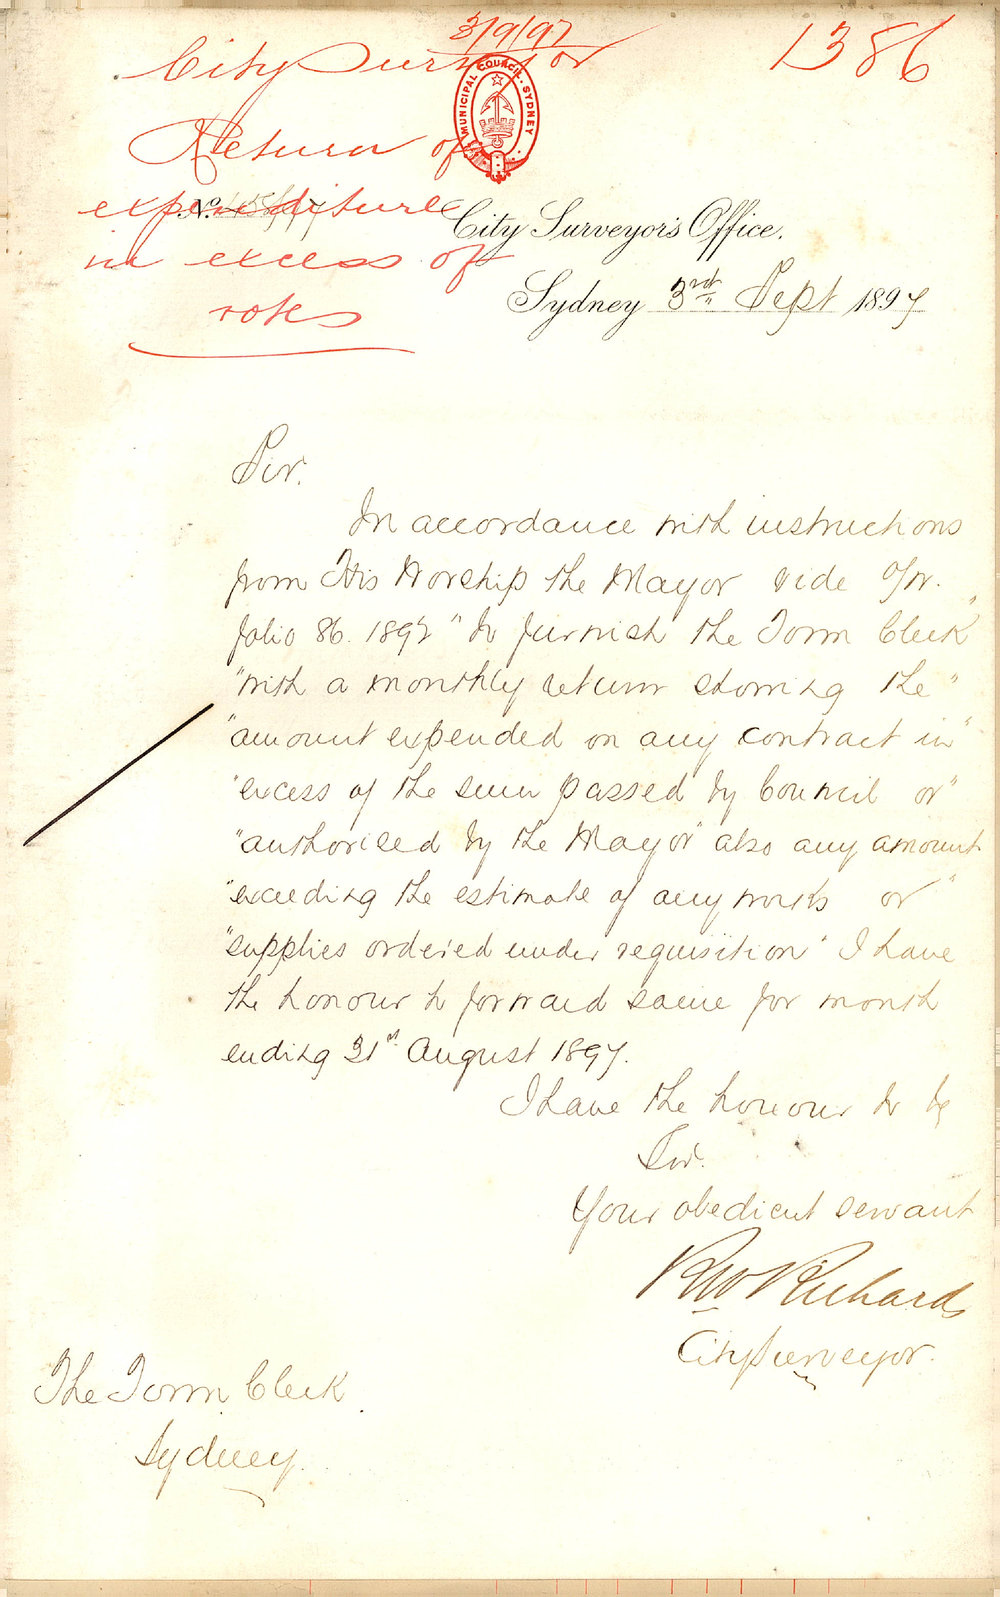 3/9/97
City Surveyor
1386
MUNICIPAL COUNCIL. SYDNEY
Return of
expenditure
in excess of
votes
No.
City Surveyor's Office.
Sydney 3rd Sept 1897
Sir.
In accordance with instructions
from His Worship the Mayor vide
folio 86. 1897 "to furnish the Town Clerk"
"with a monthly return showing the"
"amount expended on any contract in"
"excess of the sum passed by Council or"
"authorised by the Mayor" also any amount
"exceeding the estimate of any works or"
"supplies ordered under requisition" I have
the honour to forward same for month
ending 31st August 1897.
I have the honour to be
Sir.
Your obedient servant
RW Richards
City Surveyor.
The Town Clerk
Sydney.